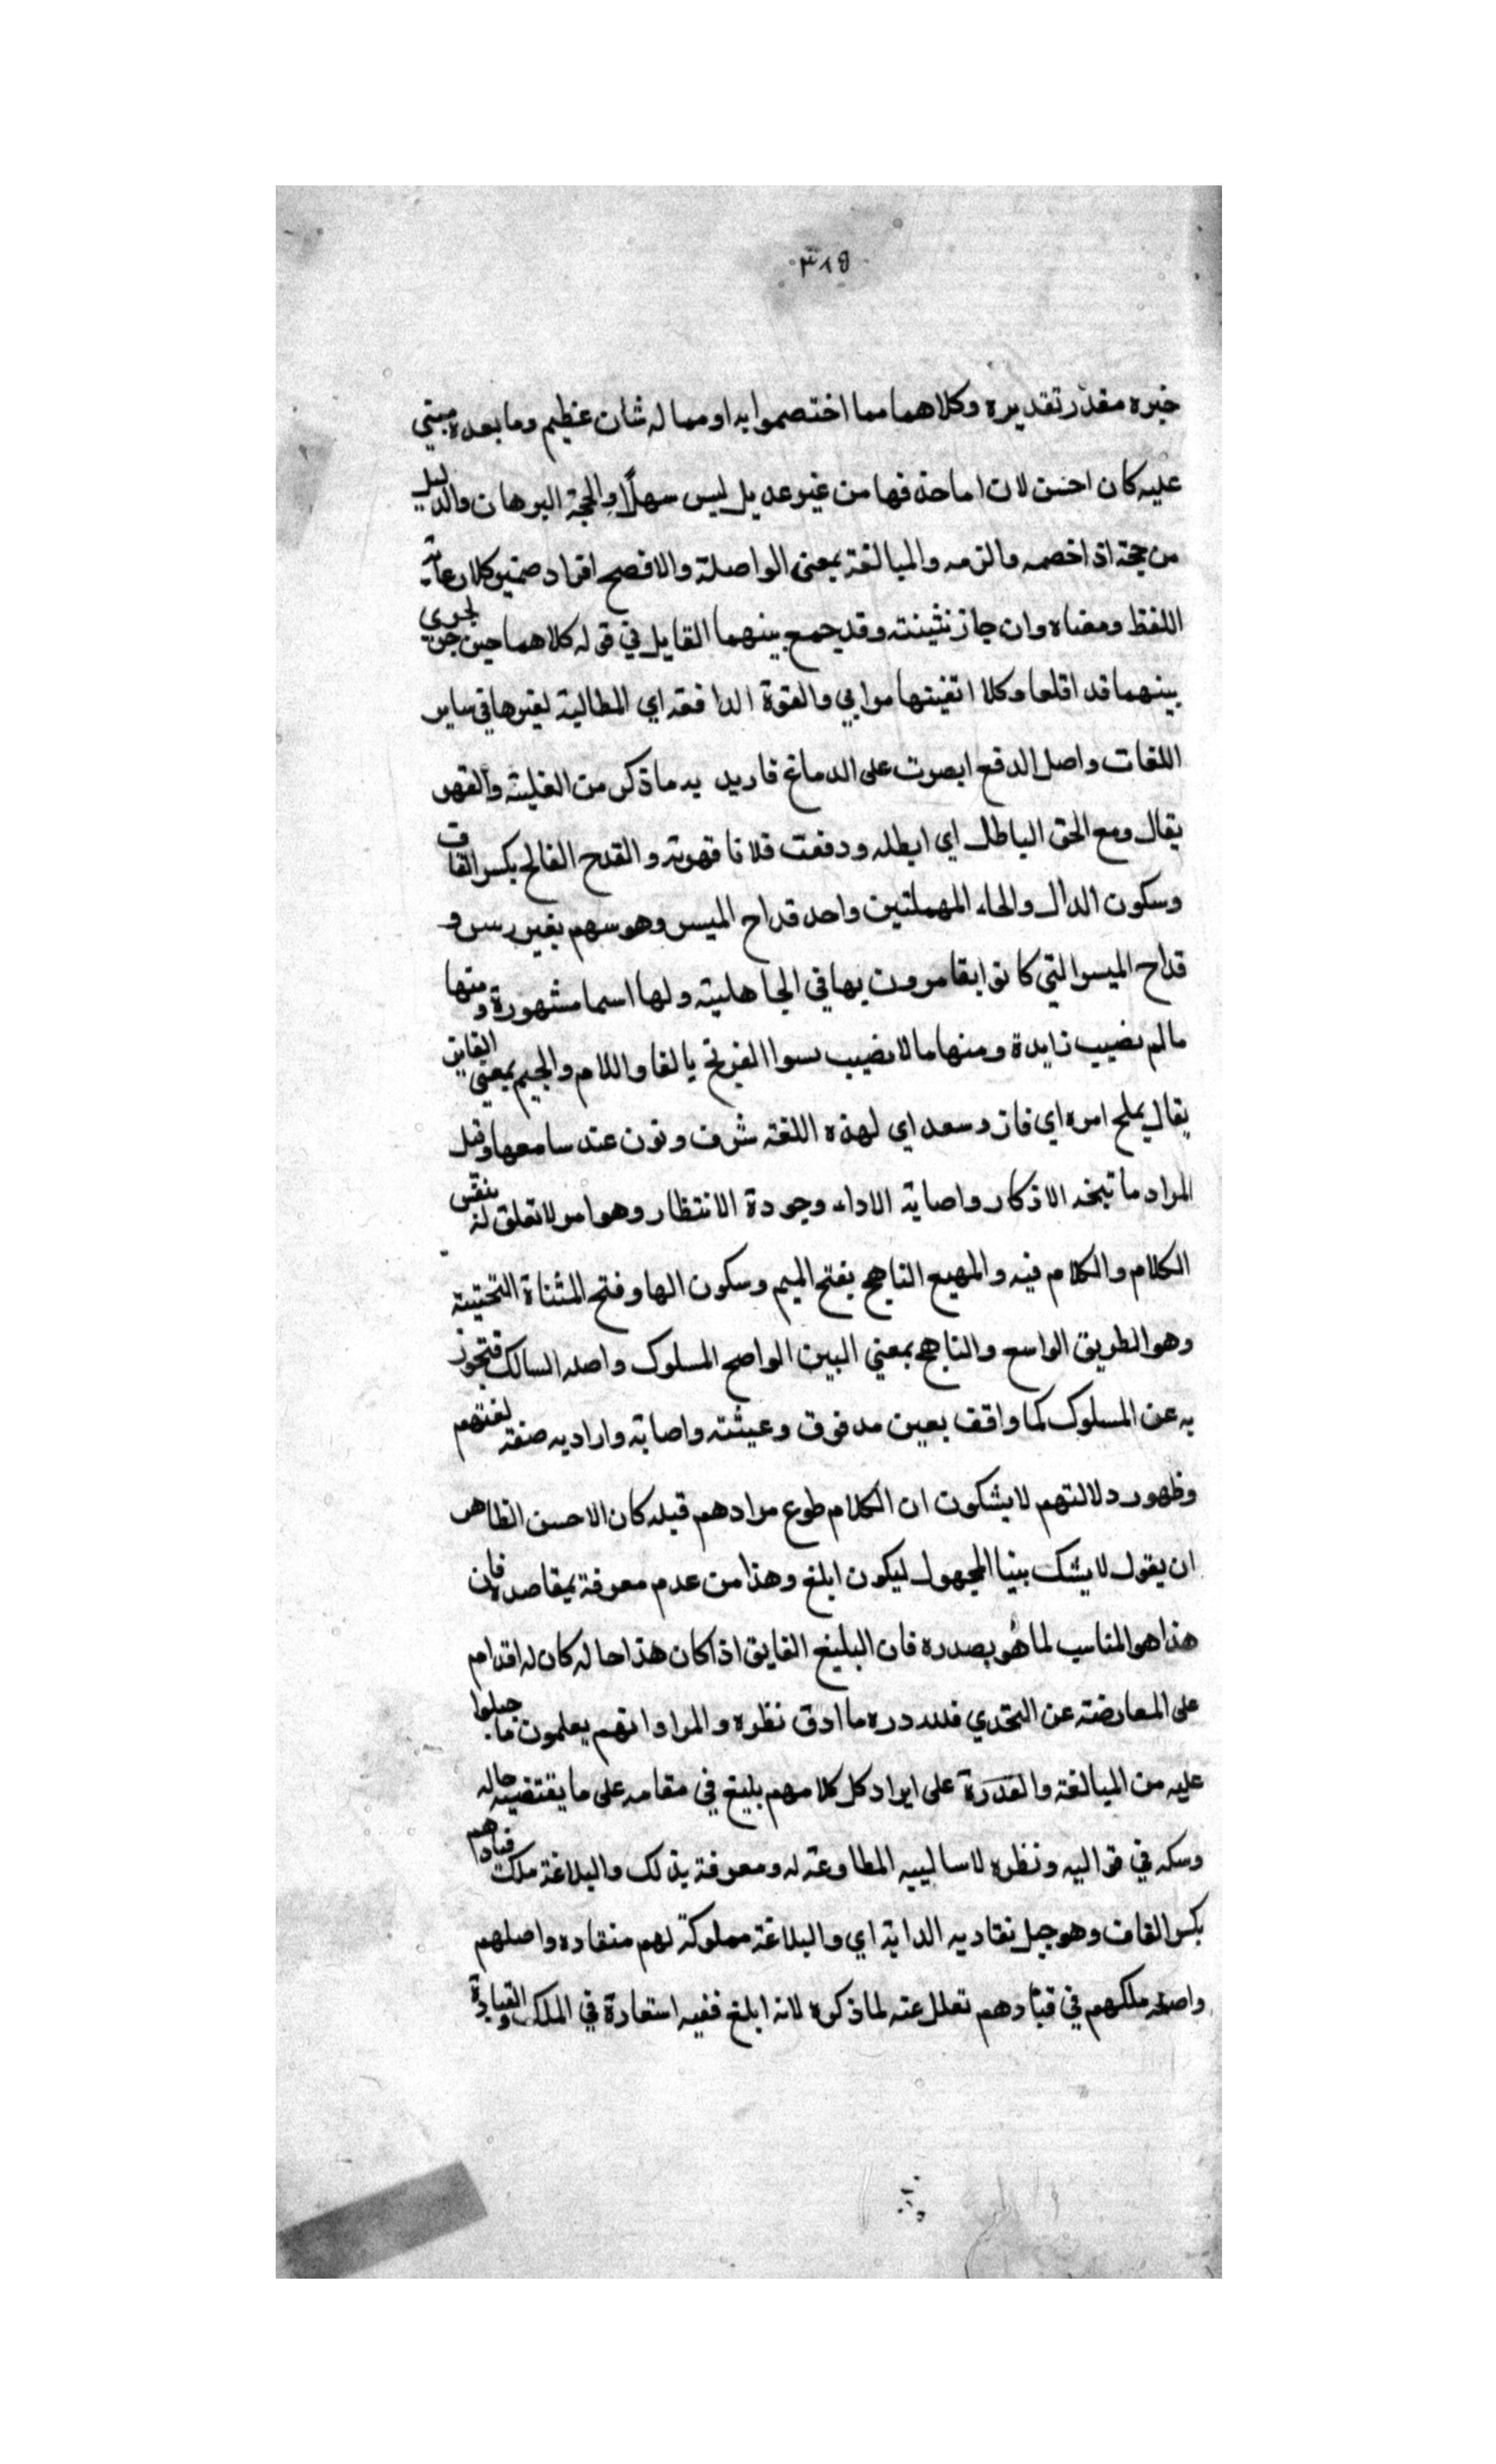 ٣١٥
خبره مقدر تقديره وكلاهما مما اختصموا به او مما له شان عظيم وما بعده مبني
عليه كان احسن لان اما حذفها من غير عديل ليس سهلا والحجة البرهان والدليل
من حجة اذا خصمه والزمه والبالغة بمعنى الواصلة والافصح افراد ضمير كلا رعاية
اللفظ ومعناه وان جاز تثينته وقد جمع بينهما القايل في قوله كلاهما حين جن لجرى
بينهما قد اقلعا وكلا انفيهما رابي والقوة الدافعة اي المطالبة لغيرها في ساير
اللغات واصل الدفع ابصوت على الدماغ فاريد به ماذكر من الغلبة والقهر
يقال ومع الحق الباطل اي ابطله ودفعت فلانا قهرته والقدح الفالح بكسر القاف
وسكون الدال والحاء المهملتين واحد قداح الميسر وهو سهم بغير رسن و
قداح الميسر التي كانوا يقامرون بها في الجاهلية ولها اسما مشهورة ومنها
مالم نصيب زايدة ومنها ما لا نصيب سوا الفرنج بالفا واللام والجيم بمعنى الفاين
يقال يملج امره اي فاز وسعد اي لهذه اللغة شرف ونون عند سامعها وقيل
المراد ما تبخه الاذكار واصابة الاداء وجودة الانتظار وهو امر لا تعلق له بنقس
الكلام والكلام فيه والمهيع الناهج بفتح الميم وسكون الها وفتح المثناة التحتيتة
وهو الطريق الواسع والناهج بمعني البين الواضح المسلوك واصله السالك فتجوز
به عن المسلوك كما واقف بعين مدفوق وعيشته واصابة واراد به صفة لغتهم
وظهور دلالتهم لا يشكون ان الكلام طوع مرادهم قيله كان الاحسن الظاهر
ان يقول لا يشك بينا المجهول ليكون ابلغ وهذا من عدم معرفة بمقاصده فان
هذا هو المناسب لما هو بصدره فان البليغ الفايق اذا كان هذا حاله كان له اقدام
على المعارضة عن التحدي فلله دره ما ادق نظره والمراد انهم يعلمون ما جبلوا
عليه من المبالغة والقدرة على ايراد كل كلامهم بليغ في مقامه على ما يقتضيه حاله
وسكه في قواليه ونظره لاساليبه المطاوعة له ومعرفة بذلك والبلاغة ملك قيادهم
بكسر القاف وهو جبل نقاد به الدابة اي والبلاغة مملوكة لهم منقاده واصلهم
واصله ملكهم في قيادهم تعلل عنه لما ذكره لانه ابلغ ففيه استعارة في الملك والقيادة